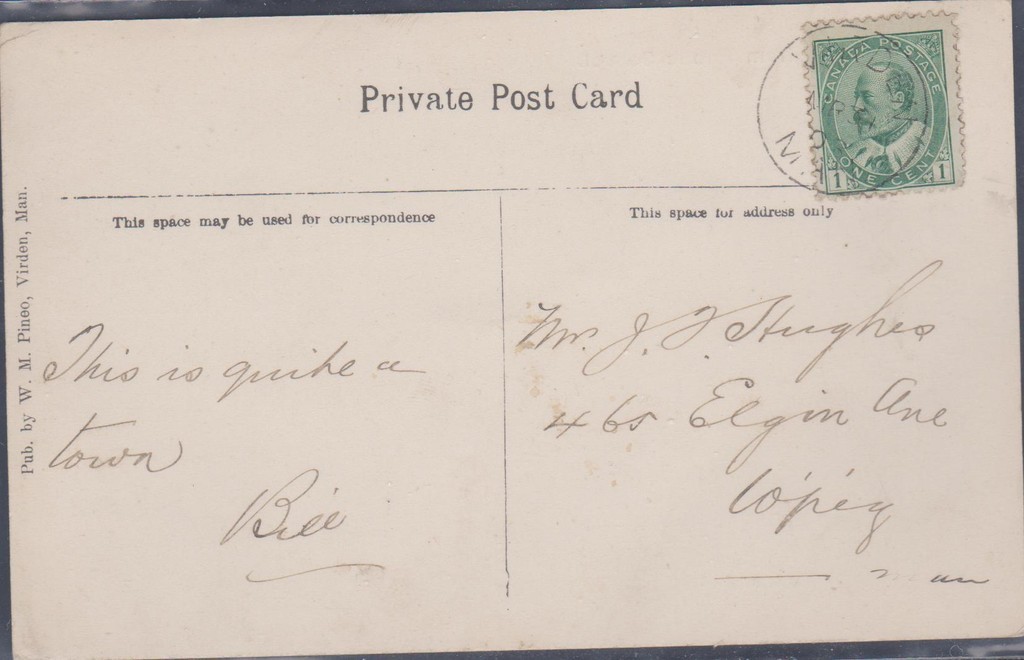 Private Post Card
CANADA POSTAGE
1 ONE CENT 1
This space may be used for correspondence
This space for address only
Pub. by W. M. Pineo, Virden, Man.
This is quite a
town
Bill
Mr. J. T. Hughes
465 Elgin Ave
Wpeg
Man